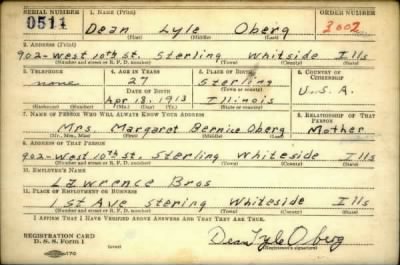 SERIAL NUMBER 1. NAME (Print) ORDER NUMBER
0511 Dean Lyle Oberg 3002
(First) (Middle) (Last)
2. ADDRESS (Print)
902-West 10th St. Sterling Whitside Ills
(Number and street or R. F. D. number) (Town) (County) (State)
3. TELEPHONE 4. AGE IN YEARS 5. PLACE OF BIRTH 6. COUNTRY OF CITIZENSHIP
none 27 Sterling
(Town or county)
DATE OF BIRTH
Apr 18, 1913 Illinois U.S.A.
(Exchange) (Number) (Mo.) (Day) (Yr.) (State or country)
7. NAME OF PERSON WHO WILL ALWAYS KNOW YOUR ADDRESS 8. RELATIONSHIP OF THAT PERSON
Mrs. Margaret Bernice Oberg Mother
(Mr., Mrs., Miss) (First) (Middle) (Last)
9. ADDRESS OF THAT PERSON
902-West 10th St. Sterling Whiteside Ills
(Number and street or R. F. D. number) (Town) (County) (State)
10. EMPLOYER'S NAME
Lawrence Bros
11. PLACE OF EMPLOYMENT OR BUSINESS
1st Ave Stering Whiteside Ills
(Number and street or R. F. D. number) (Town) (County) (State)
I AFFIRM THAT I HAVE VERIFIED ABOVE ANSWERS AND THAT THEY ARE TRUE.
REGISTRATION CARD
D. S. S. Form 1 Dean Lyle Oberg
(Registrant's signature)